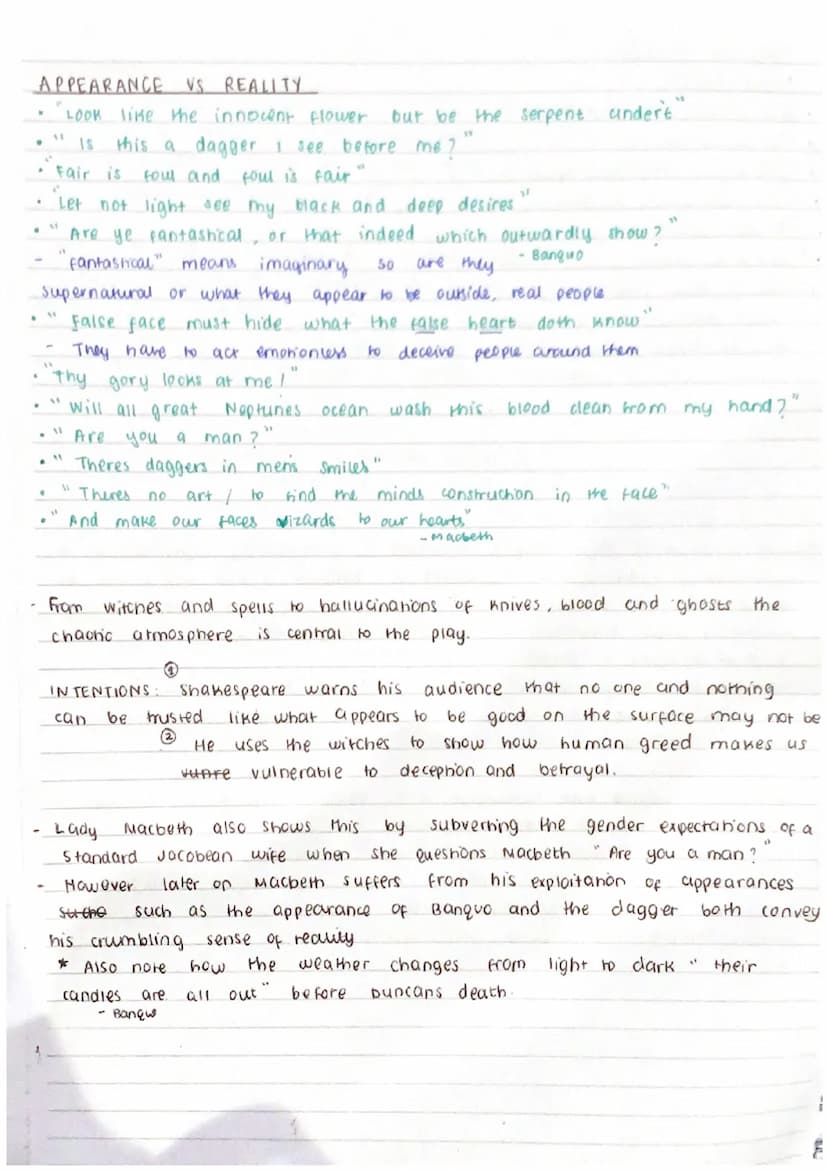 APPEARANCE VS REALITY
• "Look like the innocent flower but be the serpent under't"
• " Is this a dagger I see before me? "
• "Fair is foul and foul is fair"
• "Let not light see my black and deep desires"
• " Are ye fantastical, or that indeed which outwardly show? "
- Banquo
- "fantastical" means imaginary so are they
supernatural or what they appear to be outside, real people
• " False face must hide what the false heart doth know"
- They have to act emotionless to deceive people around them
• "Thy gory locks at me!"
• " Will all great Neptunes ocean wash this blood clean from my hand? "
• " Are you a man? "
• " Theres daggers in men's smiles"
• " Theres no art / to find the minds construction in the face"
• " And make our faces vizards to our hearts"
- Macbeth
- From witches and spells to hallucinations of knives, blood and ghosts the
chaotic atmosphere is central to the play.
①
INTENTIONS: Shakespeare warns his audience that no one and nothing
can be trusted like what appears to be good on the surface may not be
② He uses the witches to show how human greed makes us
vulnerable to deception and betrayal.
- Lady Macbeth also shows this by subverting the gender expectations of a
standard Jacobean wife when she questions Macbeth " Are you a man? "
- However later on Macbeth suffers from his exploitation of appearances
such as the appearance of Banquo and the dagger both convey
his crumbling sense of reality
* Also note how the weather changes from light to dark " their
candles are all out" before Duncans death.
- Banquo